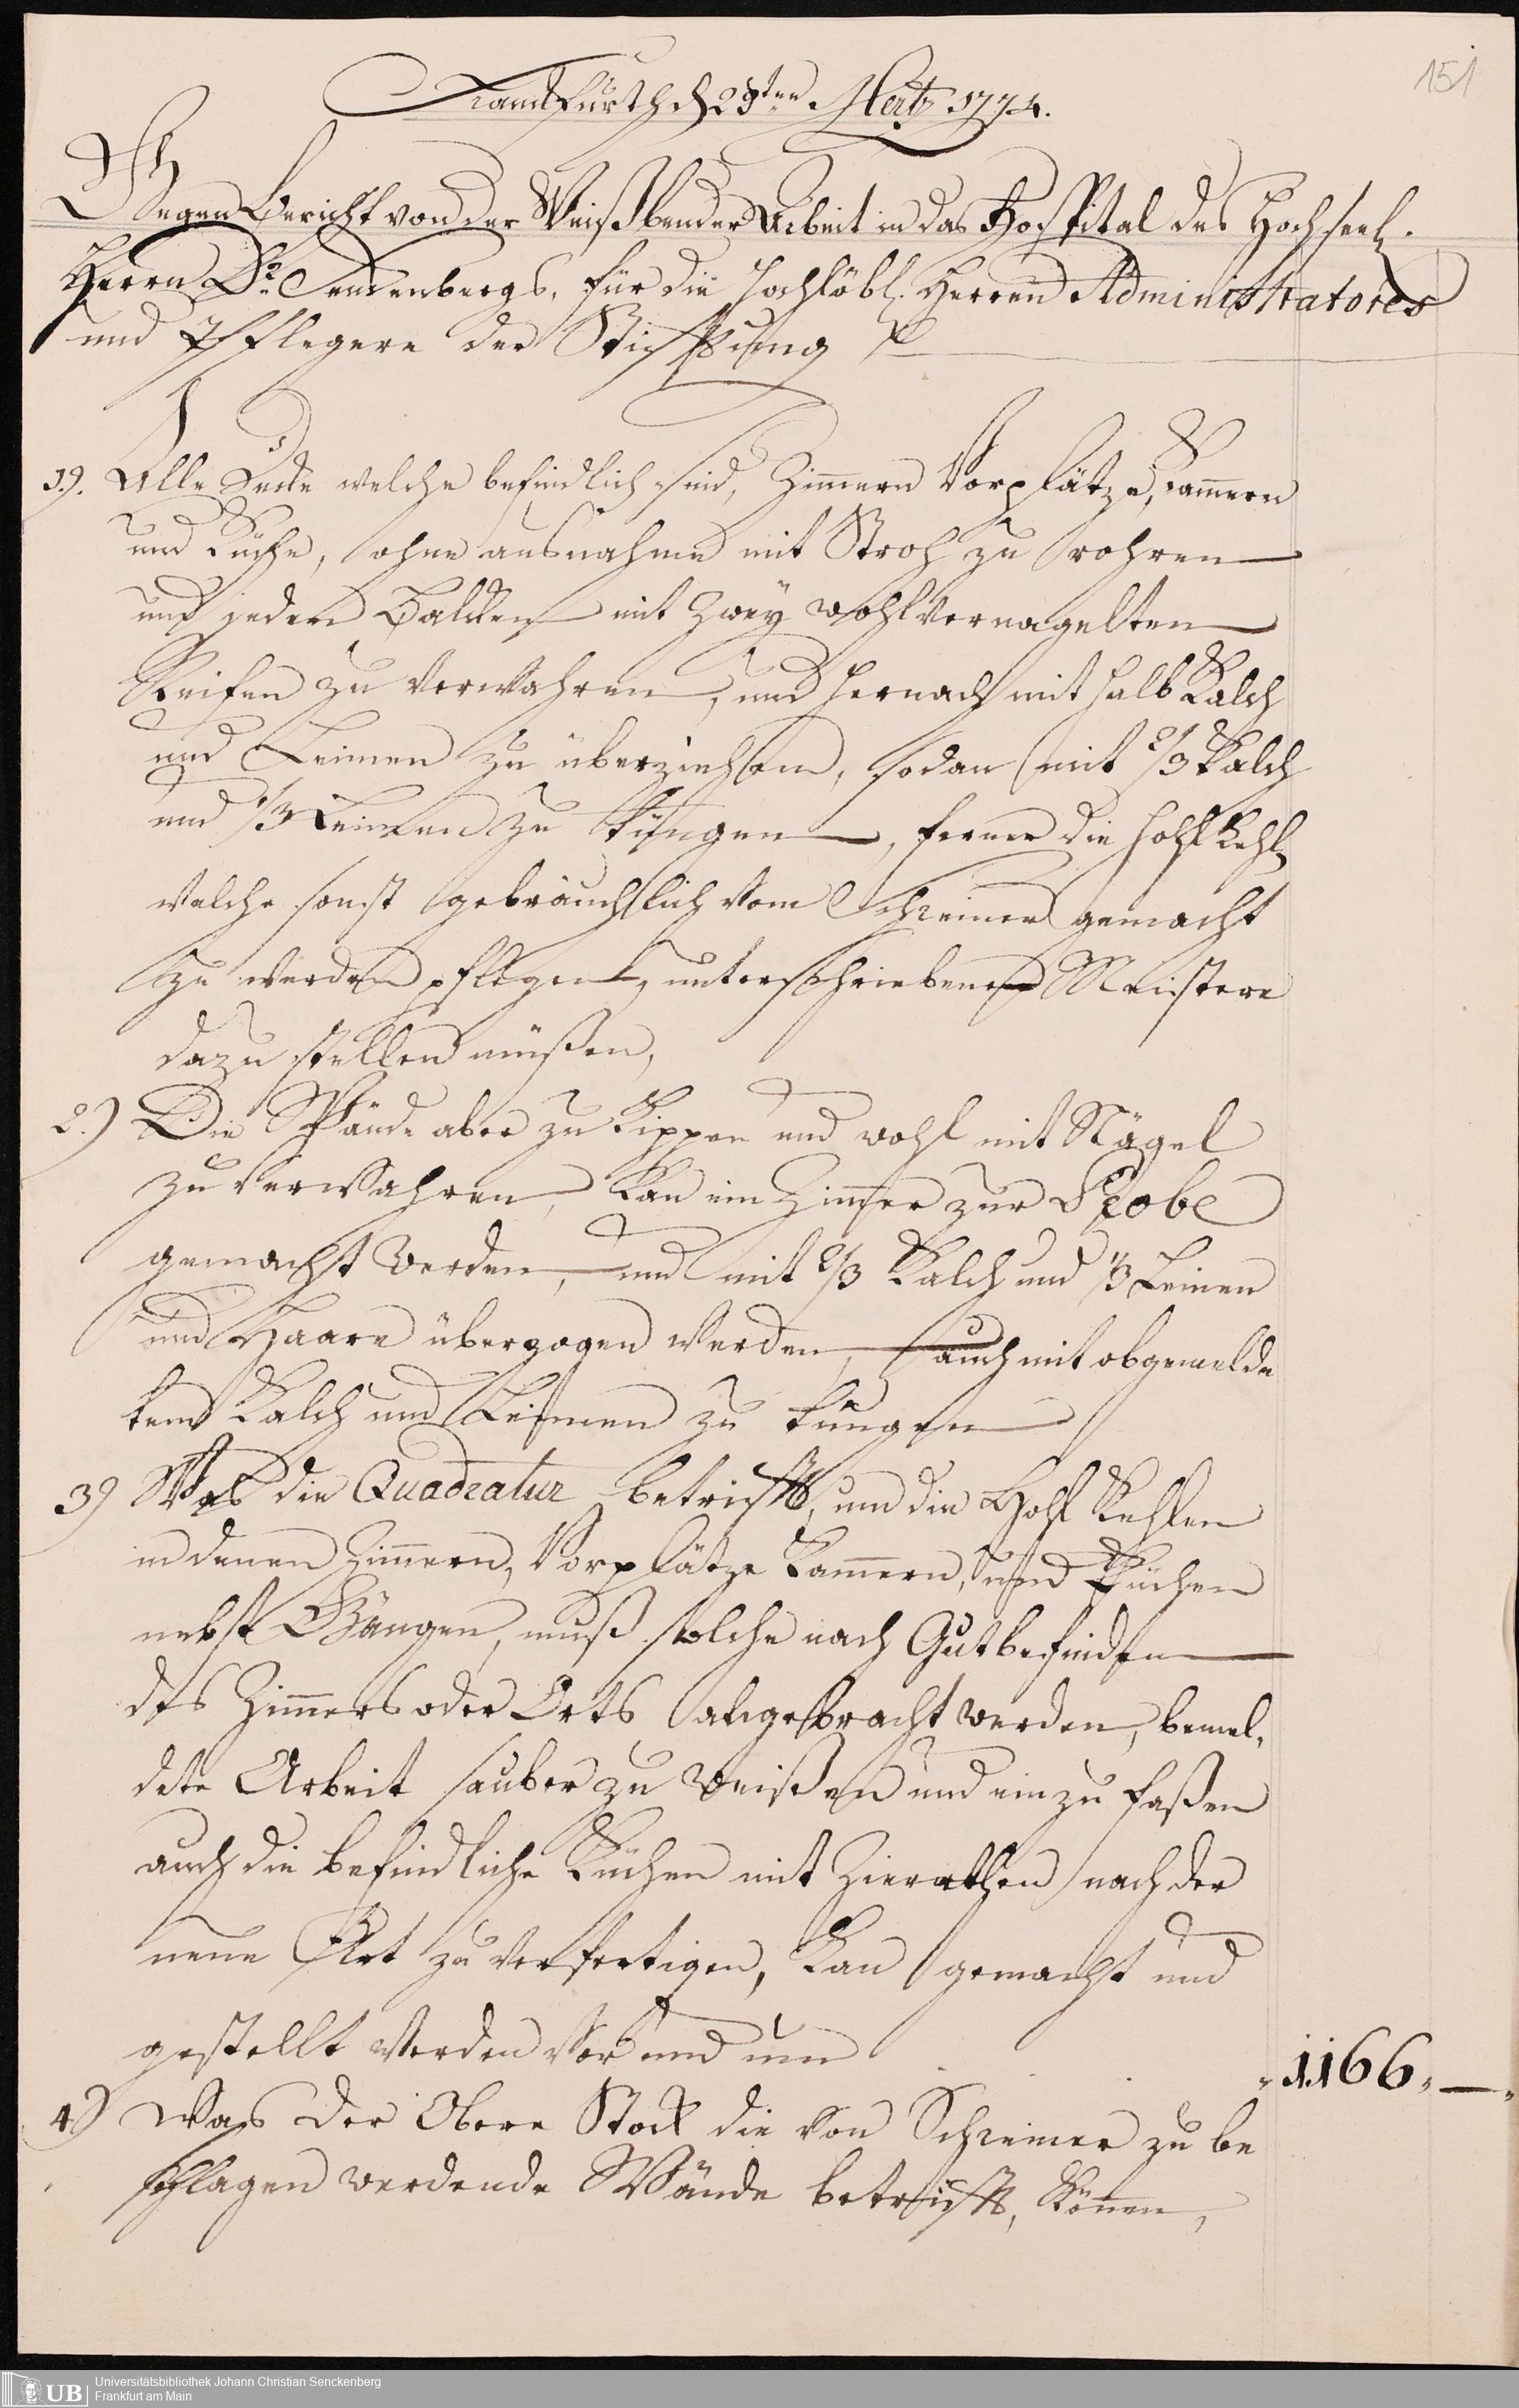 151
Franckfurth d 28ten Mertz 1774.
Wegen Bericht von der Weißbender Arbeit in das Hospital des Hochseel.
Herrn Dr. Senckenbergs, für die Hochlöbl. Herren Administratores
und Pflegere der Stifftung
1). Alle Decke welche befindlich sind, Zimmern Vorplätze, Cammern
und Küche, ohne ausnahme mit Stroh zu rohren
und jeden Balcken mit Zwey wohlvernagelten
Reifen zu Verwahren, und hernach mit halb Kalch
und Leimen zu überziehen, sodan mit 2/3 Kalch
und 1/3 Leimen zu tüngen, ferner die Hohl Kehl
welche sonst gebräuchlich vom Schreiner gemacht
zu werden pflegen, unterschriebene Meistere
dazu stellen müßen,
2.) Die Wände aber zu Pippen und wohl mit Nägel
zu verwahren, Kan ein Zimmer zur Probe
gemacht werden, und mit 2/3 Kalch und 1/3 Leimen
und Haare überzogen werden, auch mit obgemelde
tem Kalch und Leimen zu tüngen
3) Was die Quadratur betrifft, und die Hohl Kehlen
in denen Zimmern, Vorplätze Kammern, und Küchen
nebst Gängen, muß solche nach Gutbefinden
des Zimmers oder Orts angebracht werden, bemel,
dete Arbeit sauber zu weißen und einzu faßen
auch die befindliche Küchen mit Zierathen nach der
neue Art zu verfertigen, Kan gemacht und
gestellt werden vor und um
1166. —
4) Was der Obere Stock die von Schreiner zu be
schlagen werdende Wände betrifft, Können,
UB Universitätsbibliothek Johann Christian Senckenberg
Frankfurt am Main